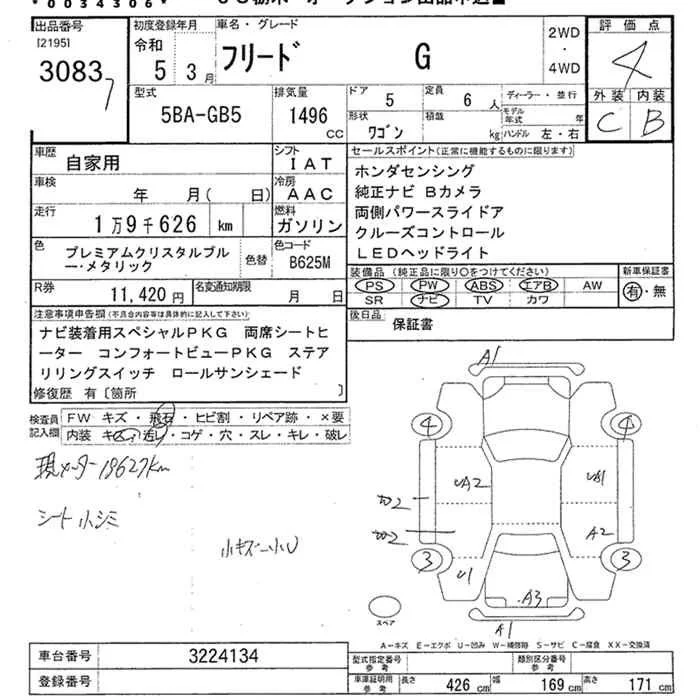 0034306
出品番号 [2195] 3083 7
初度登録年月 令和 5 3月
車名・グレード フリード G
2WD・4WD
評価点 4
外装 C 内装 B
型式 5BA-GB5
排気量 1496 CC
ドア 5 定員 6 人
形状 ワゴン 積載 kg
ディーラー・並行
モデル年式 年
ハンドル 左・右
車歴 自家用
シフト IAT
車検 年 月( 日)
冷房 AAC
走行 1万9千626 km
燃料 ガソリン
色 プレミアムクリスタルブルー・メタリック
色替
色コード B625M
R券 11,420円
名変通知期限 月 日
セールスポイント(正常に機能するものに限ります)
ホンダセンシング
純正ナビ Bカメラ
両側パワースライドア
クルーズコントロール
LEDヘッドライト
装備品 (純正品に限り○をつけてください)
PS PW ABS エアB AW
SR ナビ TV カワ
新車保証書 有・無
後日品 保証書
注意事項申告欄(不具合内容等は具体的に記入して下さい)
ナビ装着用スペシャルPKG 両席シートヒ
ーター コンフォートビューPKG ステア
リリングスイッチ ロールサンシェード
修復歴 有〔箇所 〕
検査員記入欄
FW キズ・飛石・ヒビ割・リペア跡・×要
内装 キズ・汚レ・コゲ・穴・スレ・キレ・破レ
現メーター19627km
シート小シミ
小キズ 小U
A1
4 4
UA2 U1
A2
3 3
U1
A3
A1
スペア
A-キズ E-エクボ U-凹み W-補修跡 S-サビ C-腐食 XX-交換済
車台番号 3224134
登録番号
型式指定番号 参考
類別区分番号 参考
車庫証明用 参考 長さ 426 cm 幅 169 cm 高さ 171 cm